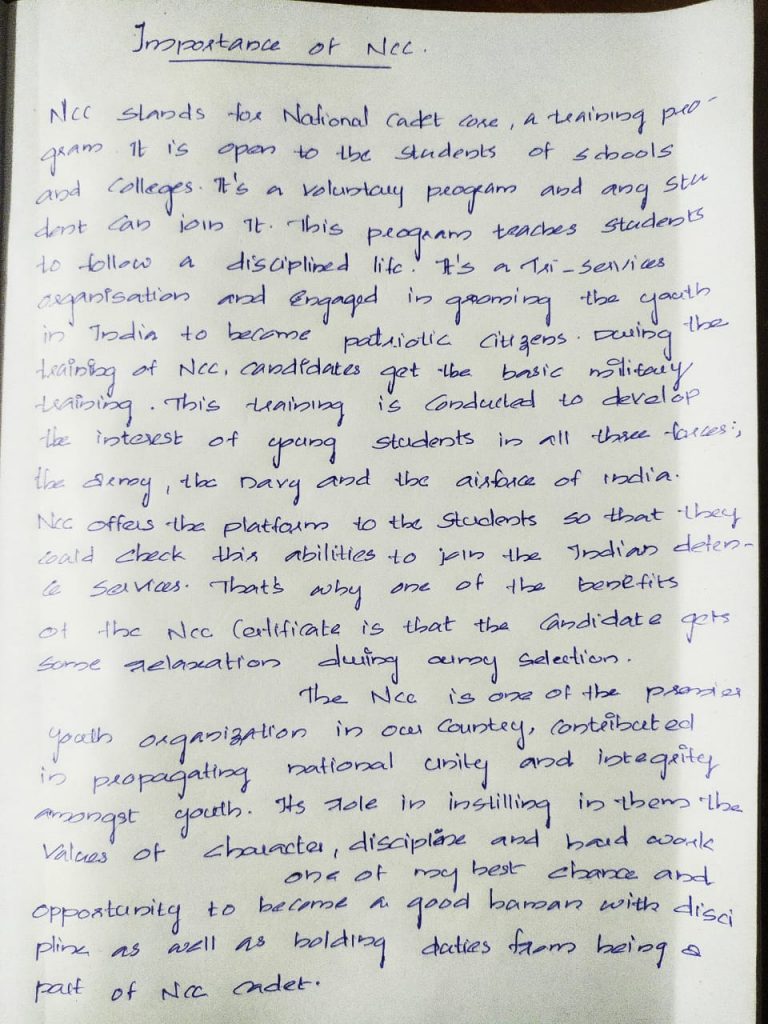 Importance of Ncc.
Ncc stands for National Cadet core, a training pro-
gram. It is open to the students of schools
and Colleges. It's a voluntary program and any stu
dent can join It. This program teaches students
to follow a disciplined life. It's a Tri-services
organisation and Engaged in grooming the youth
in India to become patriotic citizens. During the
training of Ncc, candidates get the basic military
training. This training is conducted to develop
the interest of young students in all three forces;,
the army, the navy and the airforce of india.
Ncc offers the platform to the students so that they
could check this abilities to join the Indian defen-
ce services. That's why one of the benefits
of the Ncc Certificate is that the candidate gets
some relaxation during army selection.
The Ncc is one of the premier
youth organization in our country, contributed
in propagating national unity and integrity
amongst youth. Its role in instilling in them the
values of character, discipline and hard work
one of my best chance and
opportunity to become a good human with disci
pline as well as holding duties from being a
part of Ncc cadet.